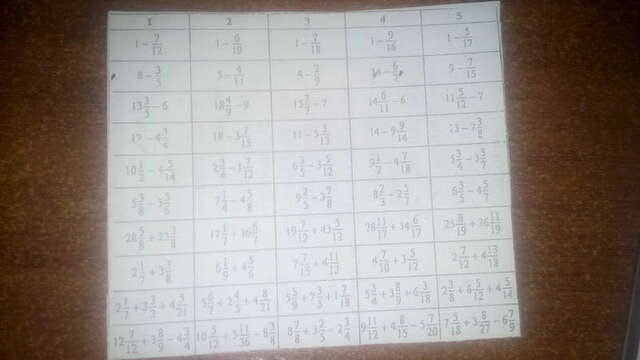 1 2 3 4 5
1 − 7/12 1 − 6/19 1 − 7/18 1 − 9/16 1 − 5/17
8 − 3/5 5 − 4/11 9 − 7/15
13 3/5 − 6 18 4/9 − 9 15 − 7 14 6/11 − 6 11 5/12 − 7
17 − 4 3/4 18 − 3 7/13 11 − 5 3/13 14 − 9 9/14 23 − 7 3/8
10 − 4 5/14 2 − 1 7/12 6 3/5 − 3 5/12 9 1/2 − 4 7/18 5 3/4 − 3 5/7
5 3/8 − 3 5/6 7 1/4 − 4 5/8 9 2/5 − 3 7/8 8 2/3 − 2 5/7 6 3/5 − 4 5/7
28 5/8 + 23 3/8 + 36 6/7 19 7/12 + 43 5/12 28 11/17 + 34 6/17 25 8/19 + 36 11/19
2 1/7 + 3 3/8 6 1/9 + 4 5/8 7 7/15 + 4 11/12 4 7/10 + 3 5/12 2 7/12 + 4 13/18
+ 4 3/21 5 6/7 + 2 4/5 + 4 8/21 5 5/9 + 7 3/5 + 1 7/18 5 3/4 + 3 8/9 + 6 3/18 2 3/8 + 6 5/12 + 4 5/14
12 7/12 + 3 8/9 − 4 3/4 10 5/12 + 5 11/36 − 8 3/8 8 7/8 + 3 2/5 − 2 3/4 9 11/12 + 4 8/15 − 3 7/20 7 5/18 + 3 8/27 − 6 7/9